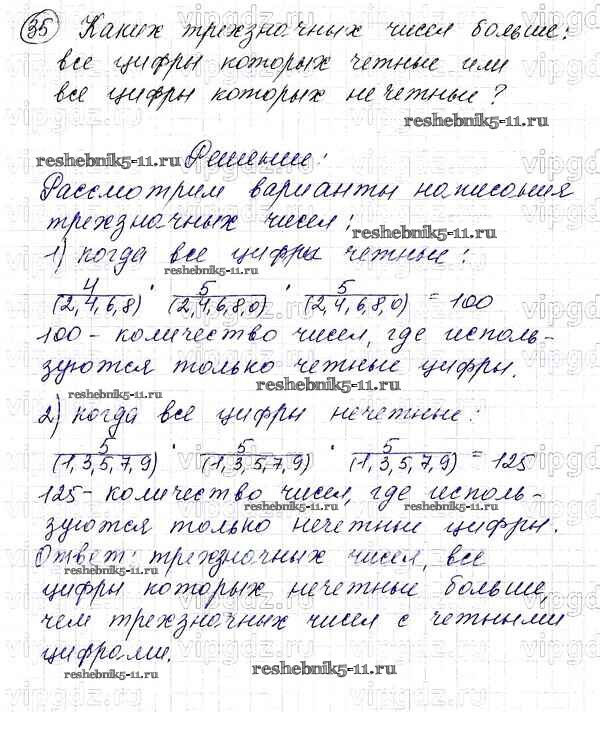 35 Каких трехзначных чисел больше:
все цифры которых четные или
все цифры которых нечетные?
reshebnik5-11.ru Решение:
Рассмотрим варианты написания
трехзначных чисел: reshebnik5-11.ru
1) когда все цифры четные:
reshebnik5-11.ru
4 · 5 · 5
(2,4,6,8) (2,4,6,8,0) (2,4,6,8,0) = 100
100 - количество чисел, где исполь-
зуются только четные цифры.
reshebnik5-11.ru
reshebnik5-11.ru
2) когда все цифры нечетные:
5 · 5 · 5
(1,3,5,7,9) (1,3,5,7,9) (1,3,5,7,9) = 125
125 - количество чисел, где исполь-
reshebnik5-11.ru
зуются только нечетные цифры.
Ответ: трехзначных чисел, все
reshebnik5-11.ru
цифры которых нечетные больше,
чем трехзначных чисел с четными
цифрами.
reshebnik5-11.ru
reshebnik5-11.ru
vipgdz.ru